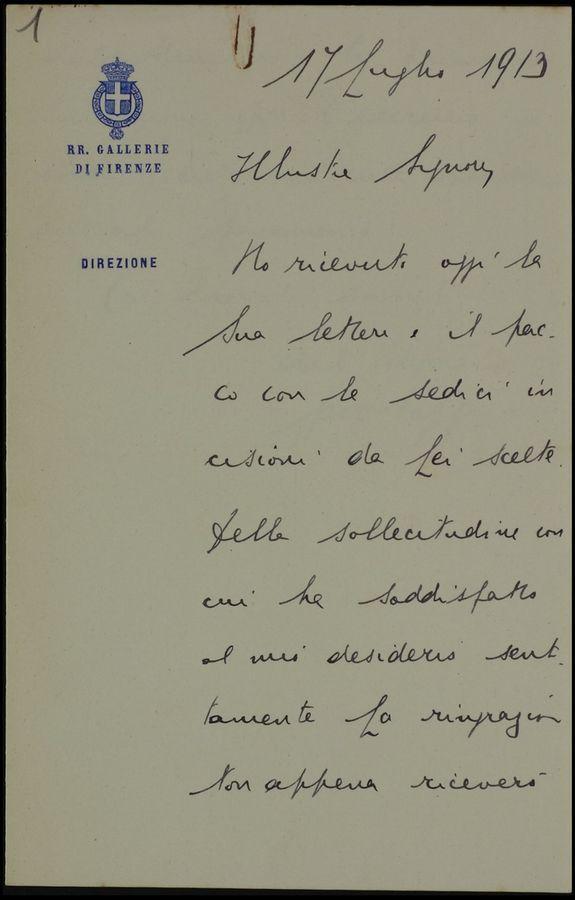 1
17 Luglio 1913
RR. GALLERIE
DI FIRENZE
Illustre Signore,
DIREZIONE
Ho ricevuto oggi la
Sua lettera e il pac-
co con le sedici in
cisioni da Lei scelte.
Della sollecitudine con
cui ha soddisfatto
al mio desiderio sent.
tamente La ringrazio
Non appena riceverò